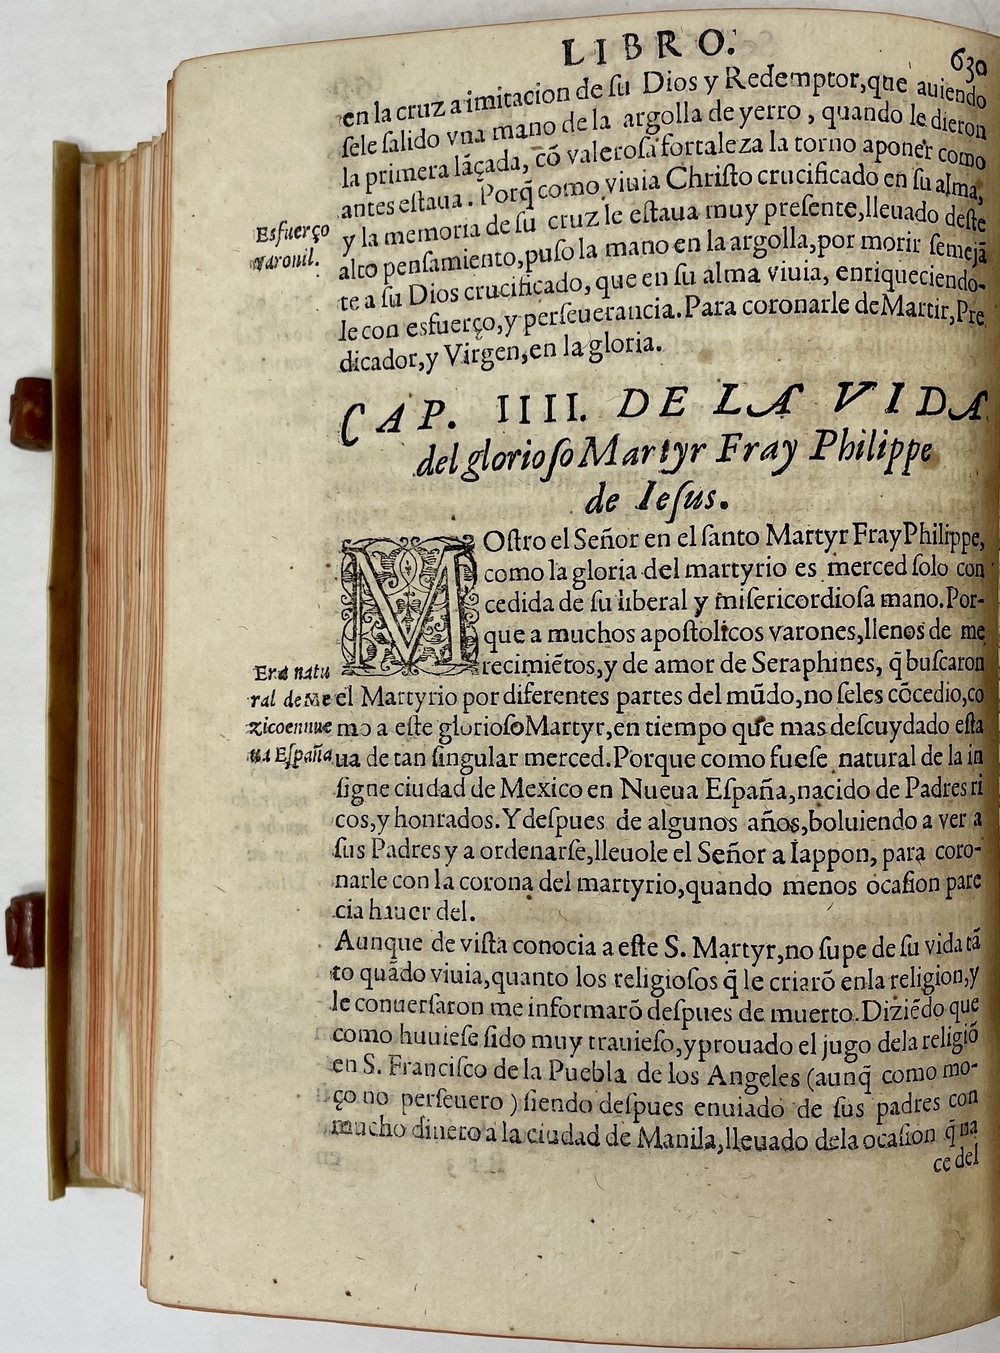 LIBRO.
630
en la cruz a imitacion de ſu Dios y Redemptor, que auiendo
ſele ſalido vna mano de la argolla de yerro, quando le dieron
la primera lãçada, cõ valeroſa fortaleza la torno a poner como
antes eſtaua. Porq̃ como viuia Chriſto crucificado en ſu alma,
y la memoria de ſu cruz le eſtaua muy preſente, lleuado deſte
alto penſamiento, puſo la mano en la argolla, por morir ſemejã
te a ſu Dios crucificado, que en ſu alma viuia, enriqueciendo-
le con esfuerço, y perſeuerancia. Para coronarle de Martir, Pre
dicador, y Virgen, en la gloria.
Esfuerço
varonil.
CAP. IIII. DE LA VIDA
del glorioſo Martyr Fray Philippe
de Ieſus.
MOſtro el Señor en el ſanto Martyr Fray Philippe,
como la gloria del martyrio es merced ſolo con
cedida de ſu liberal y miſericordioſa mano. Por-
que a muchos apoſtolicos varones, llenos de me
recimiẽtos, y de amor de Seraphines, q̃ buſcaron
el Martyrio por diferentes partes del mũdo, no ſeles cõcedio, co
mo a eſte glorioſo Martyr, en tiempo que mas deſcuydado eſta
ua de tan ſingular merced. Porque como fueſe natural de la in
ſigne ciudad de Mexico en Nueua Eſpaña, nacido de Padres ri
cos, y honrados. Y deſpues de algunos años, boluiendo a ver a
ſus Padres y a ordenarſe, lleuole el Señor a Iappon, para coro-
narle con la corona del martyrio, quando menos ocaſion pare
cia hauer del.
Era natu
ral de Me
xico en nue
ua Eſpaña
Aunque de viſta conocia a eſte S. Martyr, no ſupe de ſu vida tã
to quãdo viuia, quanto los religioſos q̃ le criarõ enla religion, y
le conuerſaron me informarõ deſpues de muerto. Diziẽdo que
como huuieſe ſido muy trauieſo, y prouado el jugo dela religiõ
en S. Franciſco de la Puebla de los Angeles (aunq̃ como mo-
ço no perſeuero) ſiendo deſpues enuiado de ſus padres con
mucho dinero a la ciudad de Manila, lleuado dela ocaſion q̃ na
ce del